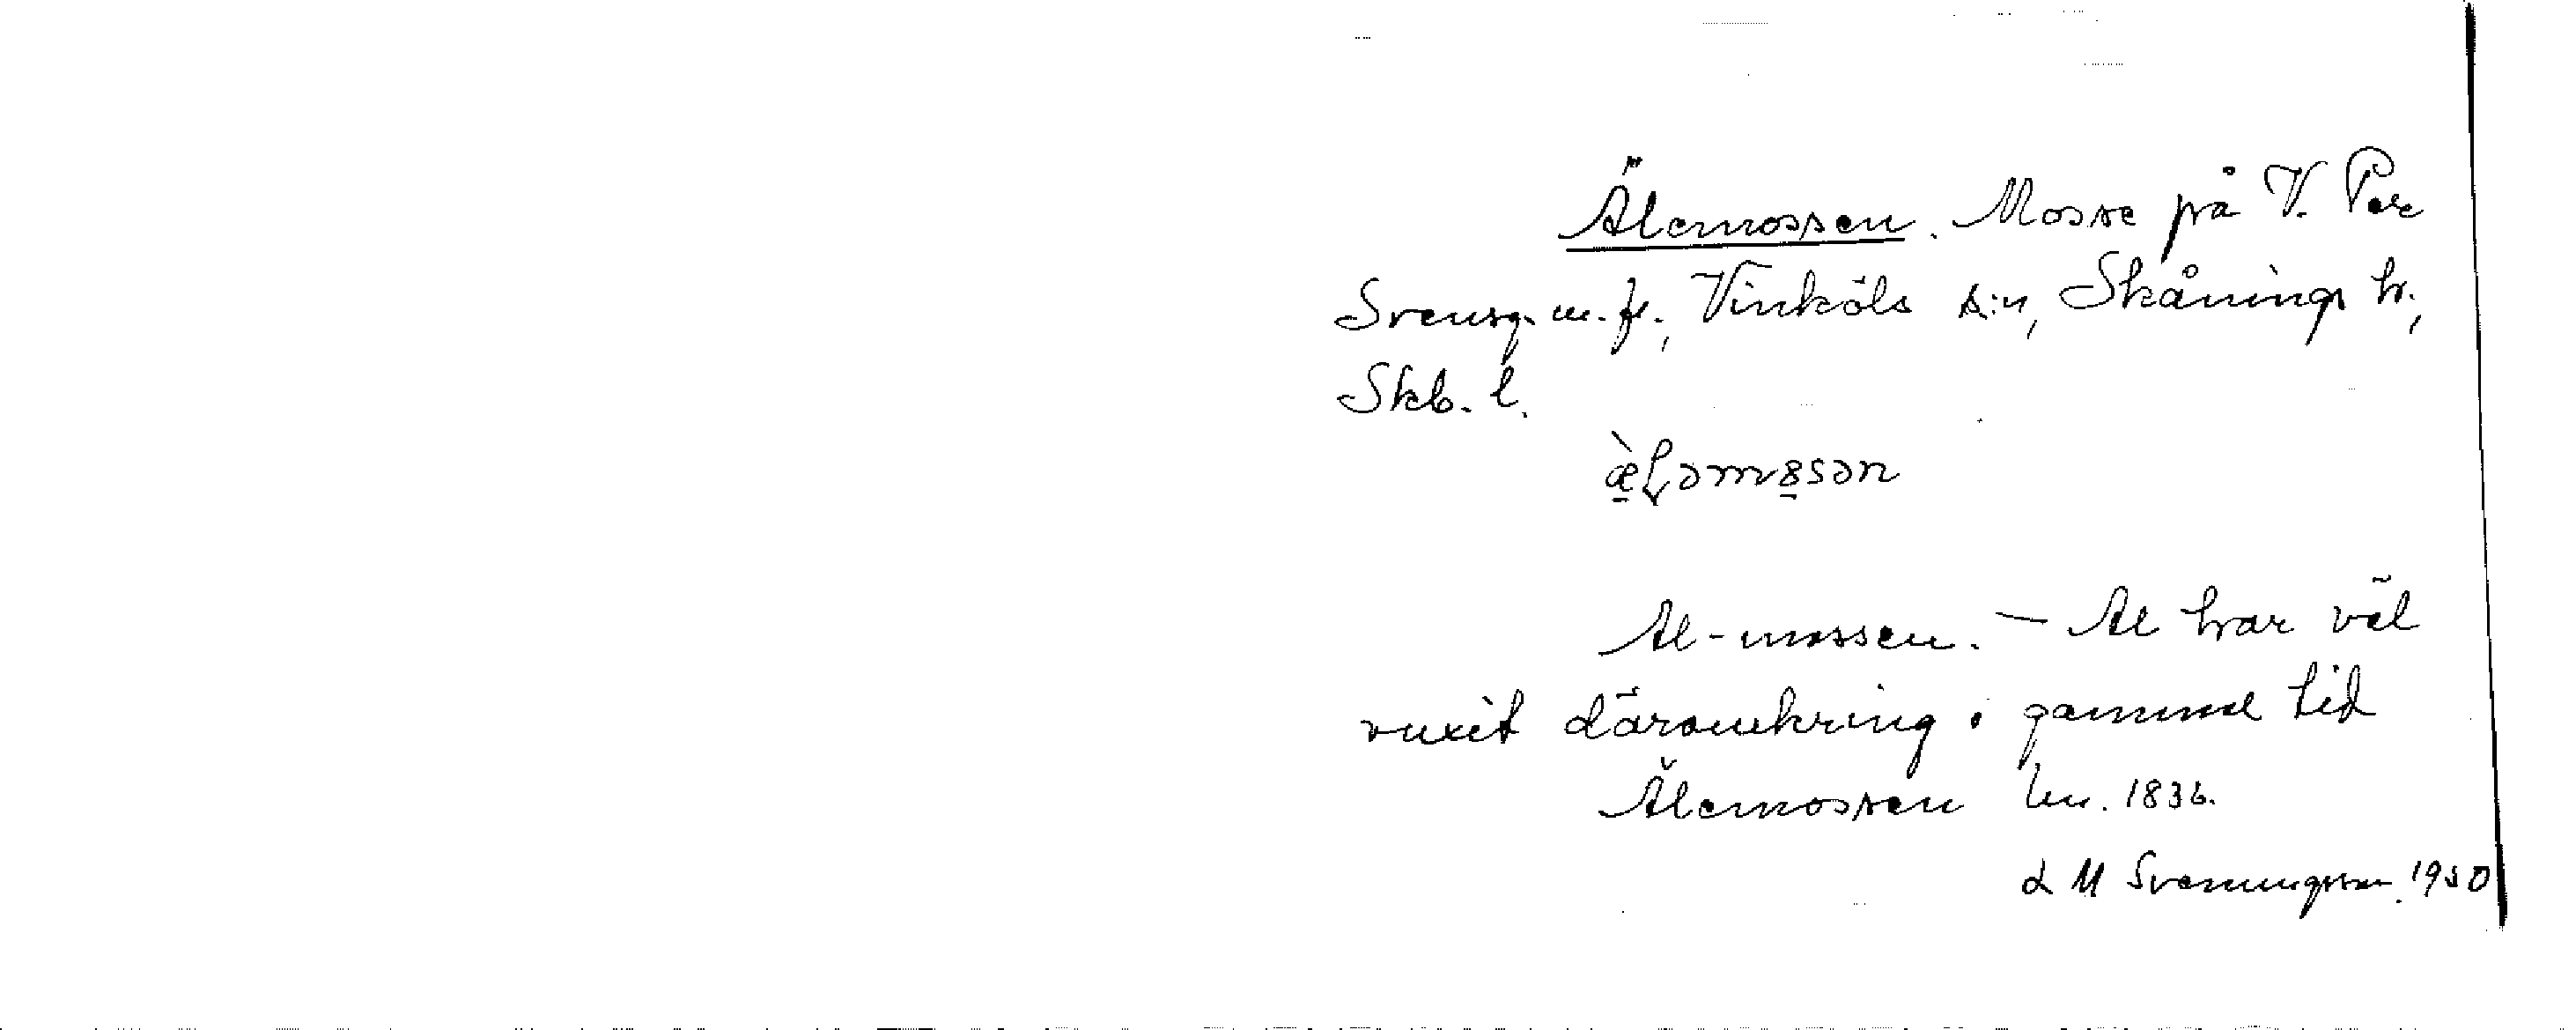 Älemossen. Mosse på V. Per
Svensg. m. fl., Vinköls s:n, Skånings hr,
Skb. l.
æ̀Ləmɞsən
Al-mossen. – Al har väl
vuxit däromkring i gammal tid
Älemossen hn. 1836.
L M Svenungsson. 1950